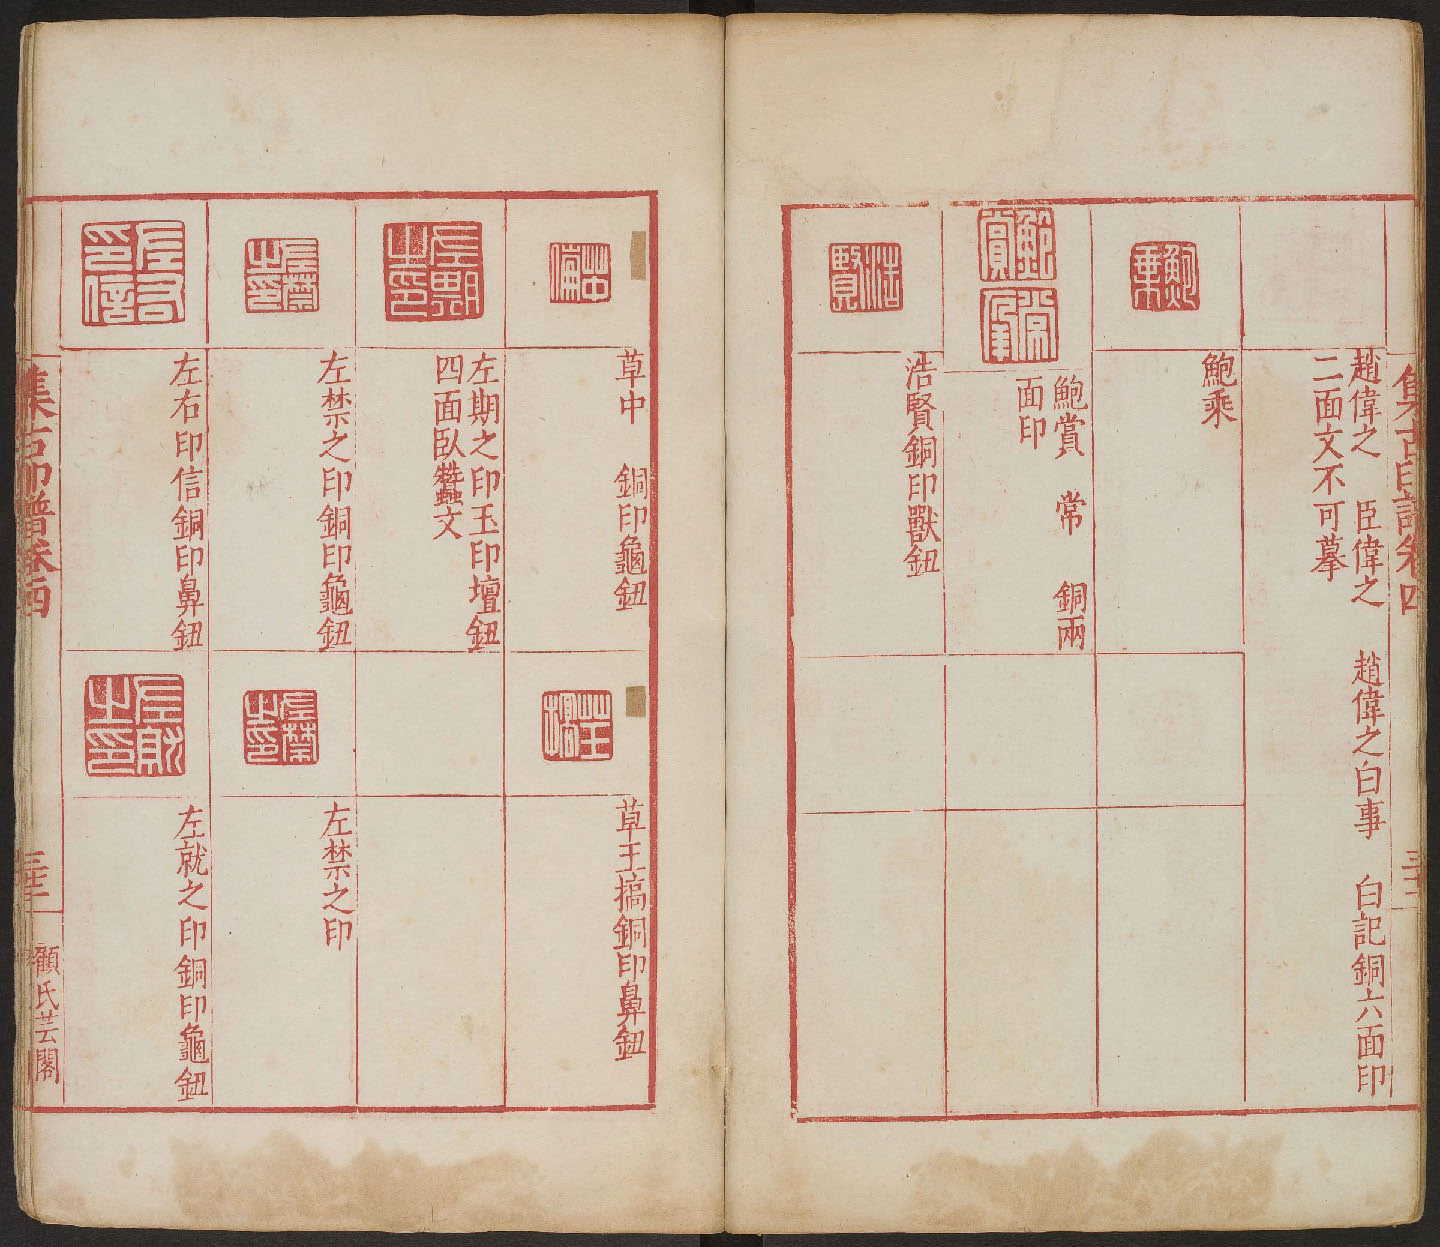 集古印譜卷四
趙偉之　臣偉之　趙偉之白事　白記銅六面印
二面文不可摹
鮑乘
鮑賞　常　銅兩
面印
浩賢銅印獸鈕
草中　銅印龜鈕
草王搞銅印鼻鈕
左期之印玉印壇鈕
四面臥蠶文
左禁之印銅印龜鈕
左禁之印
左右印信銅印鼻鈕
左就之印銅印龜鈕
集古印譜卷四
顧氏芸閣